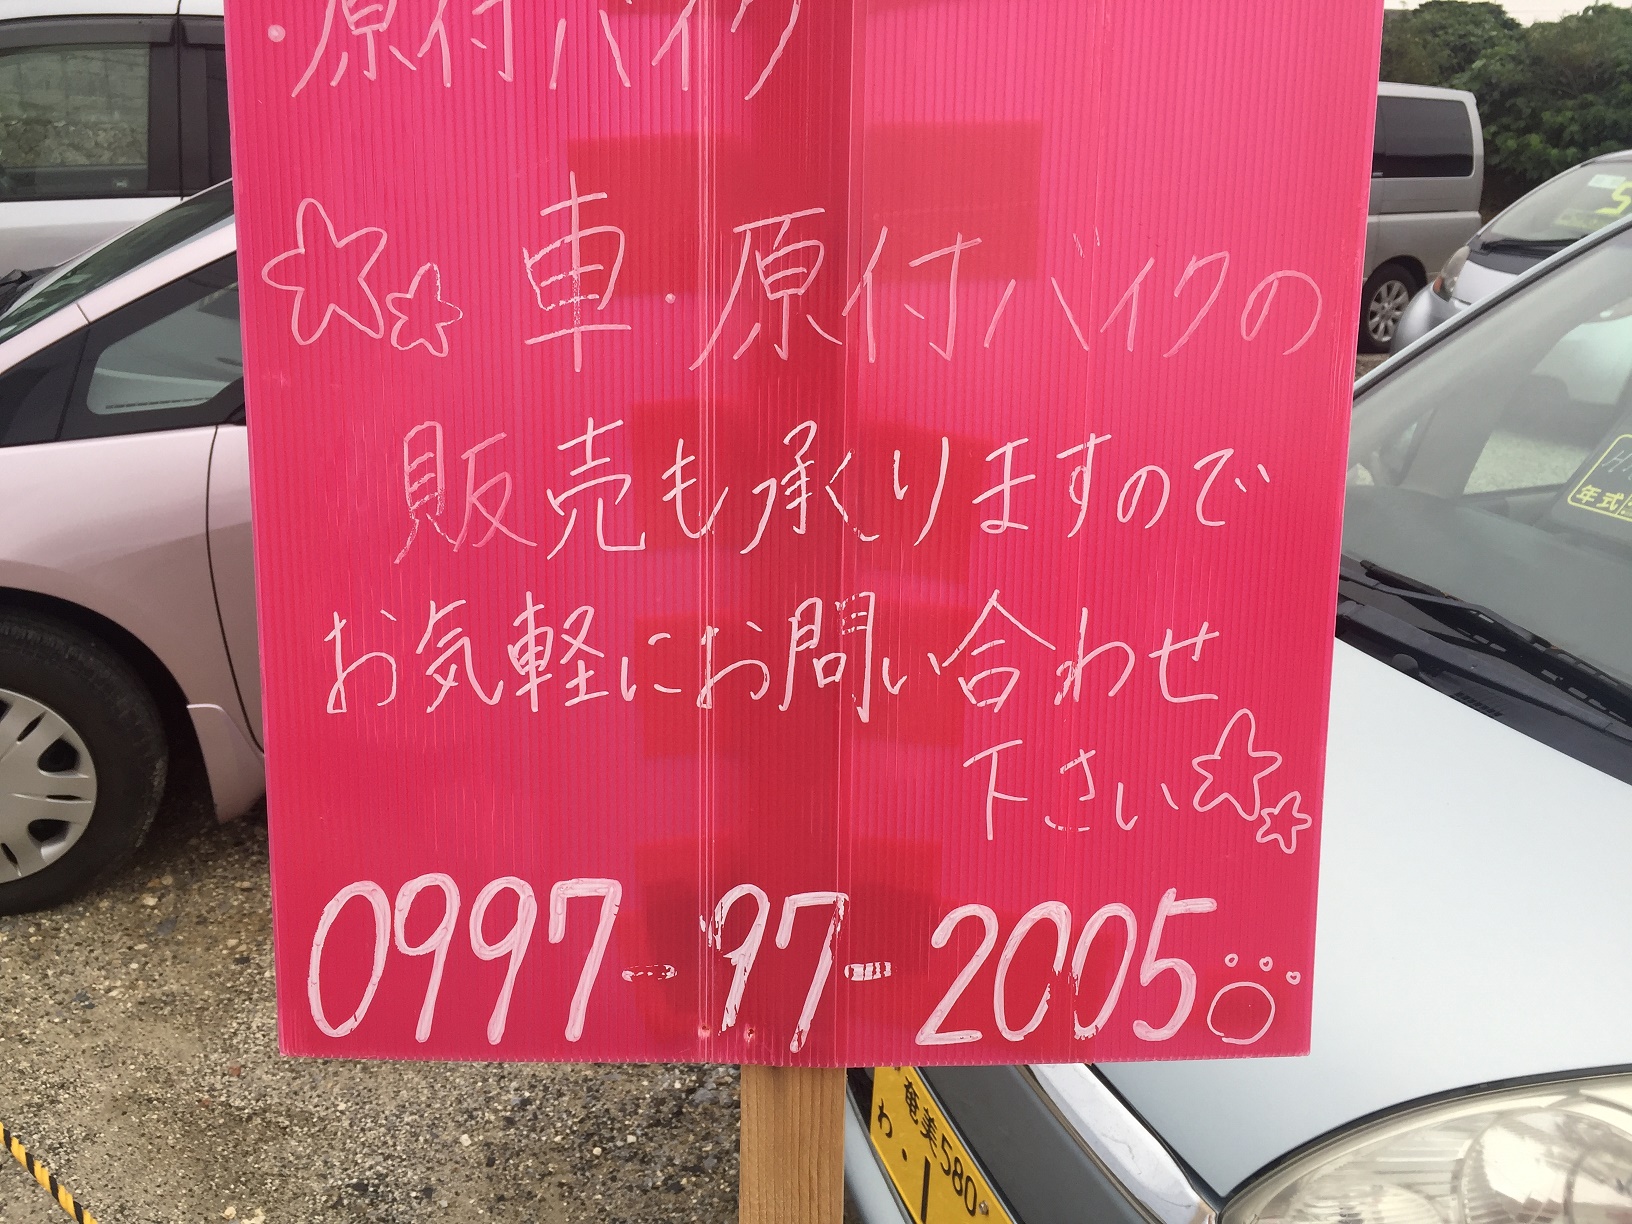 ・原付バイク
車・原付バイクの
販売も承りますので
お気軽にお問い合わせ
下さい
0997-97-2005
年式
奄美580
わ・